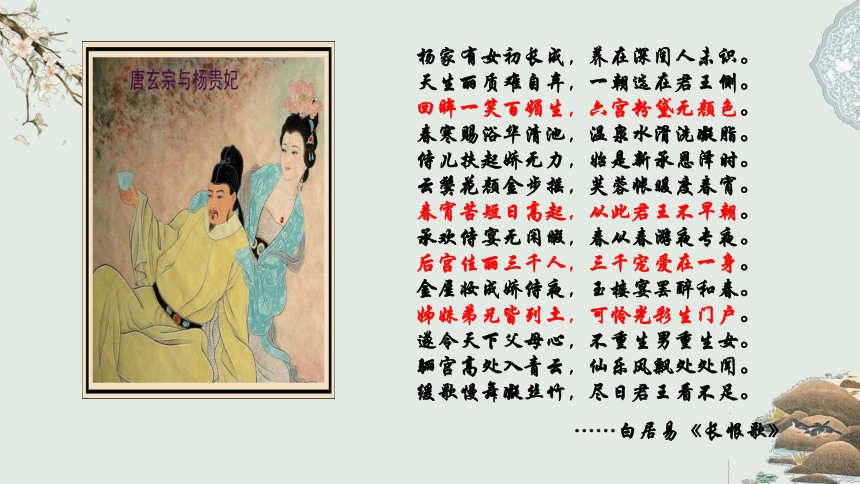 唐玄宗与杨贵妃
杨家有女初长成，养在深闺人未识。
天生丽质难自弃，一朝选在君王侧。
回眸一笑百媚生，六宫粉黛无颜色。
春寒赐浴华清池，温泉水滑洗凝脂。
侍儿扶起娇无力，始是新承恩泽时。
云鬓花颜金步摇，芙蓉帐暖度春宵。
春宵苦短日高起，从此君王不早朝。
承欢侍宴无闲暇，春从春游夜专夜。
后宫佳丽三千人，三千宠爱在一身。
金屋妆成娇侍夜，玉楼宴罢醉和春。
姊妹弟兄皆列土，可怜光彩生门户。
遂令天下父母心，不重生男重生女。
骊宫高处入青云，仙乐风飘处处闻。
缓歌慢舞凝丝竹，尽日君王看不足。
……白居易《长恨歌》